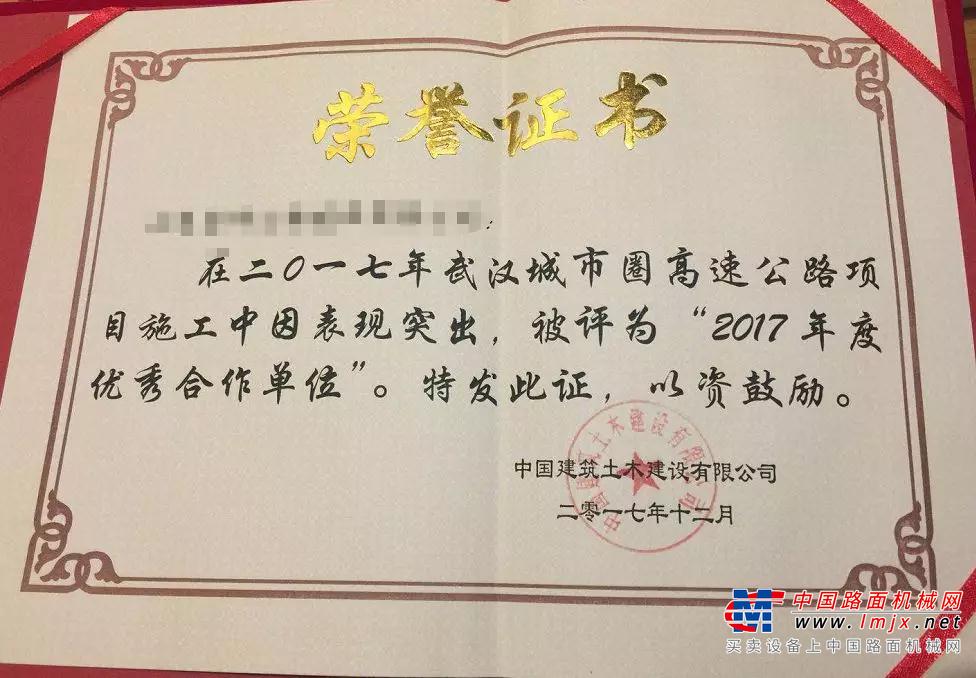 荣誉证书
在二〇一七年武汉城市圈高速公路项
目施工中因表现突出，被评为“2017年度
优秀合作单位”。特发此证，以资鼓励。
中国建筑土木建设有限公司
中国建筑土木建设有限公司
二零一七年十二月
中国路面机械网
www.lmjx.net
买卖设备上中国路面机械网